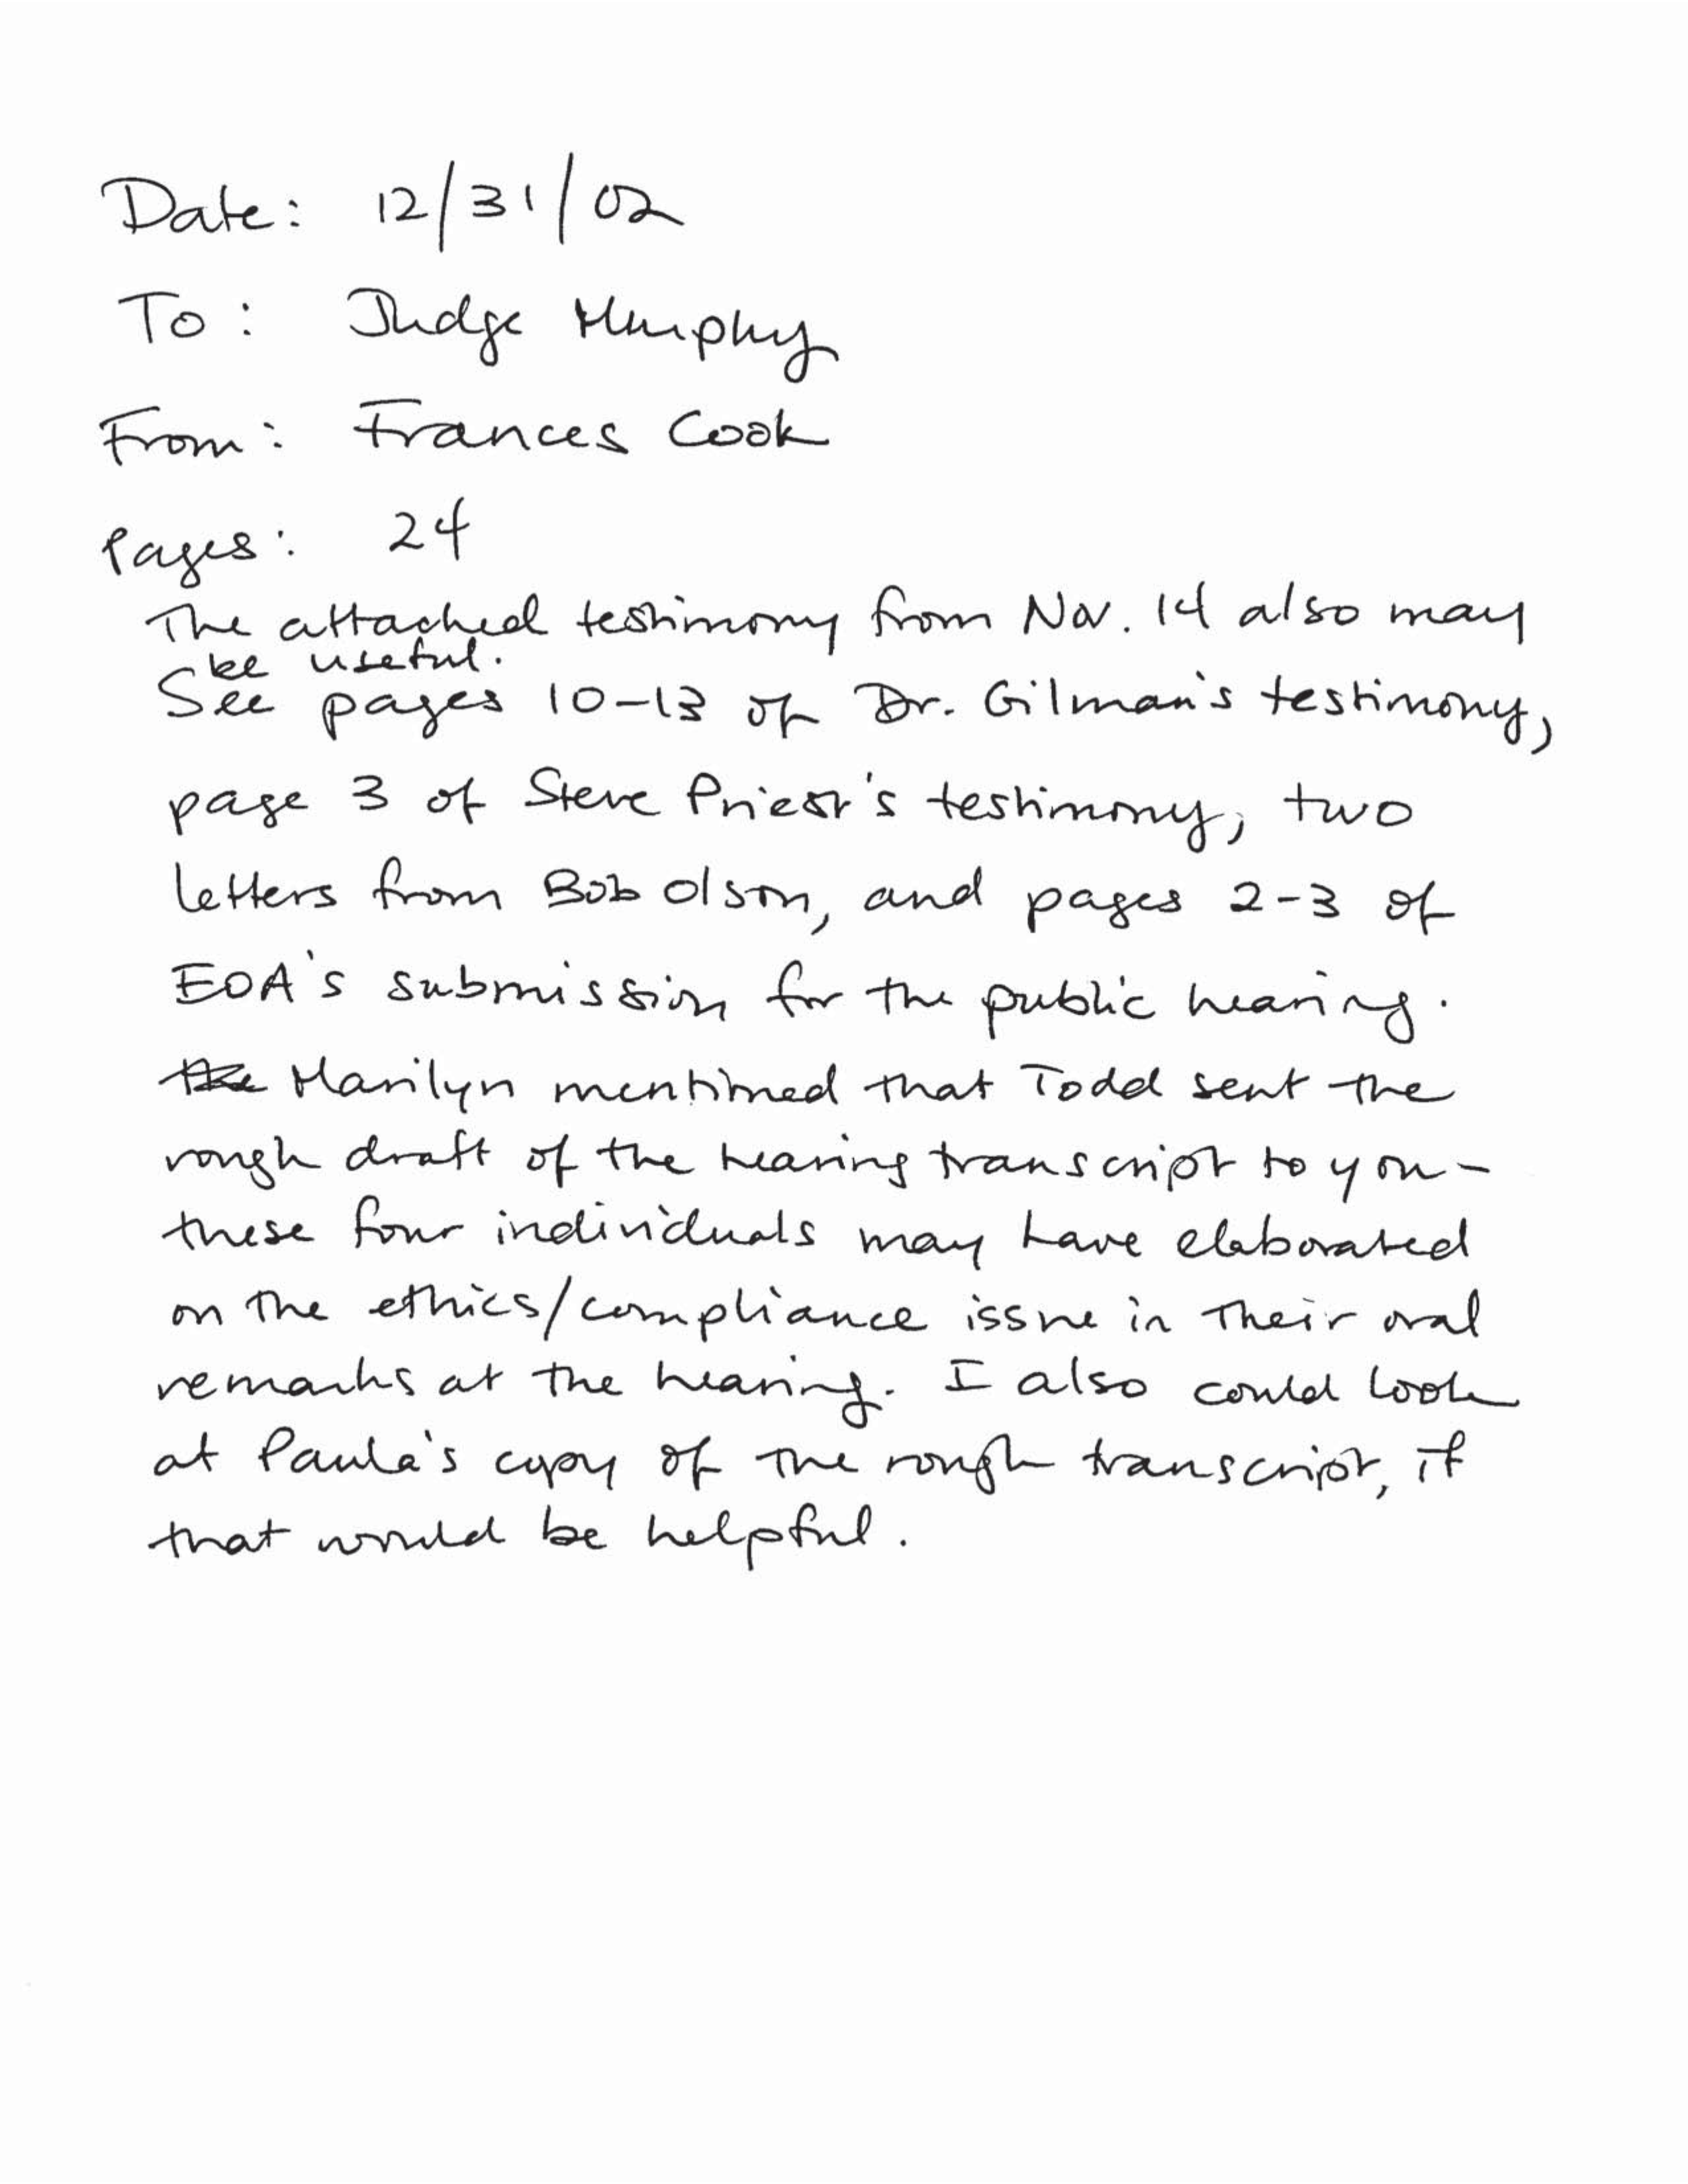 Date: 12/31/02
To: Judge Murphy
From: Frances Cook
Pages: 24
The attached testimony from Nov. 14 also may
be useful.
See pages 10-13 of Dr. Gilman's testimony,
page 3 of Steve Priest's testimony, two
letters from Bob Olson, and pages 2-3 of
EOA's submission for the public hearing.
The Marilyn mentioned that Todd sent the
rough draft of the hearing transcript to you -
these four individuals may have elaborated
on the ethics/compliance issue in their oral
remarks at the hearing. I also could look
at Paula's copy of the rough transcript, if
that would be helpful.